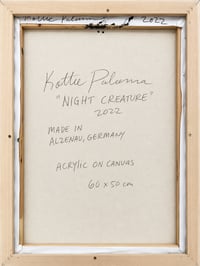 Kottie Paloma 2022
Kottie Paloma
"NIGHT CREATURE"
2022
MADE IN
ALZENAU, GERMANY
ACRYLIC ON CANVAS
60 x 50 cm